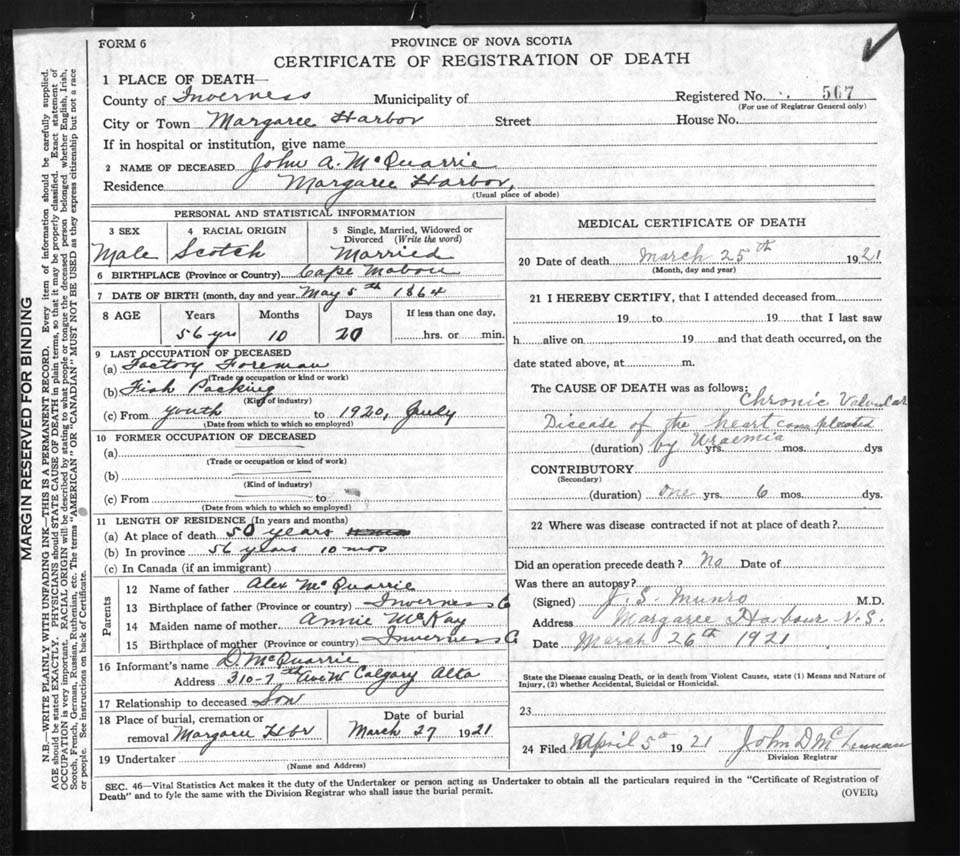 FORM 6
PROVINCE OF NOVA SCOTIA
CERTIFICATE OF REGISTRATION OF DEATH
1 PLACE OF DEATH—
County of Inverness Municipality of Registered No. 507
(For use of Registrar General only)
City or Town Margaree Harbor Street House No.
If in hospital or institution, give name
2 NAME OF DECEASED John A. McQuarrie
Residence Margaree Harbor,
(Usual place of abode)
PERSONAL AND STATISTICAL INFORMATION
3 SEX 4 RACIAL ORIGIN 5 Single, Married, Widowed or
Divorced (Write the word)
Male Scotch Married
6 BIRTHPLACE (Province or Country) Cape Mabou
7 DATE OF BIRTH (month, day and year) May 5th 1864
8 AGE Years Months Days If less than one day,
56 yrs 10 20 hrs. or min.
9 LAST OCCUPATION OF DECEASED
(a) Factory Foreman
(Trade or occupation or kind or work)
(b) Fish Packing
(Kind of industry)
(c) From youth to 1920, July
(Date from which to which so employed)
10 FORMER OCCUPATION OF DECEASED
(a)
(Trade or occupation or kind of work)
(b)
(Kind of industry)
(c) From to
(Date from which to which so employed)
11 LENGTH OF RESIDENCE (In years and months)
(a) At place of death 50 years
(b) In province 56 years 10 mos
(c) In Canada (if an immigrant)
Parents
12 Name of father Alex McQuarrie
13 Birthplace of father (Province or country) Inverness Co
14 Maiden name of mother Annie McKay
15 Birthplace of mother (Province or country) Inverness Co
16 Informant's name D. McQuarrie
Address 310-7th Ave W Calgary Alta
17 Relationship to deceased Son
18 Place of burial, cremation or Date of burial
removal Margaree Hbr March 27 1921
19 Undertaker
(Name and Address)
MEDICAL CERTIFICATE OF DEATH
20 Date of death March 25th 1921
(Month, day and year)
21 I HEREBY CERTIFY, that I attended deceased from
19 to 19 that I last saw
h alive on 19 and that death occurred, on the
date stated above, at m.
The CAUSE OF DEATH was as follows:
Chronic Valvular
Disease of the heart complicated
by Uraemia
(duration) yrs. mos. dys
CONTRIBUTORY
(Secondary)
(duration) one yrs. 6 mos. dys.
22 Where was disease contracted if not at place of death?
Did an operation precede death? No Date of
Was there an autopsy?
(Signed) J. S. Munro M.D.
Address Margaree Harbour N.S.
Date March 26th 1921
State the Disease causing Death, or in death from Violent Causes, state (1) Means and Nature of
Injury, (2) whether Accidental, Suicidal or Homicidal.
23
24 Filed April 5th 1921 John D McLennan
Division Registrar
SEC. 46—Vital Statistics Act makes it the duty of the Undertaker or person acting as Undertaker to obtain all the particulars required in the "Certificate of Registration of
Death" and to fyle the same with the Division Registrar who shall issue the burial permit.
(OVER)
MARGIN RESERVED FOR BINDING
N.B.—WRITE PLAINLY WITH UNFADING INK—THIS IS A PERMANENT RECORD. Every item of information should be carefully supplied.
AGE should be stated EXACTLY. PHYSICIANS should STATE CAUSE OF DEATH in plain terms, so that it may be properly classified. Exact statement of
OCCUPATION is very important. RACIAL ORIGIN will be described by stating to what people or tongue the deceased person belonged whether English, Irish,
Scotch, French, German, Russian, Ruthenian, etc. The terms "AMERICAN" OR "CANADIAN" MUST NOT BE USED as they express citizenship but not a race
or people. See instructions on back of Certificate.